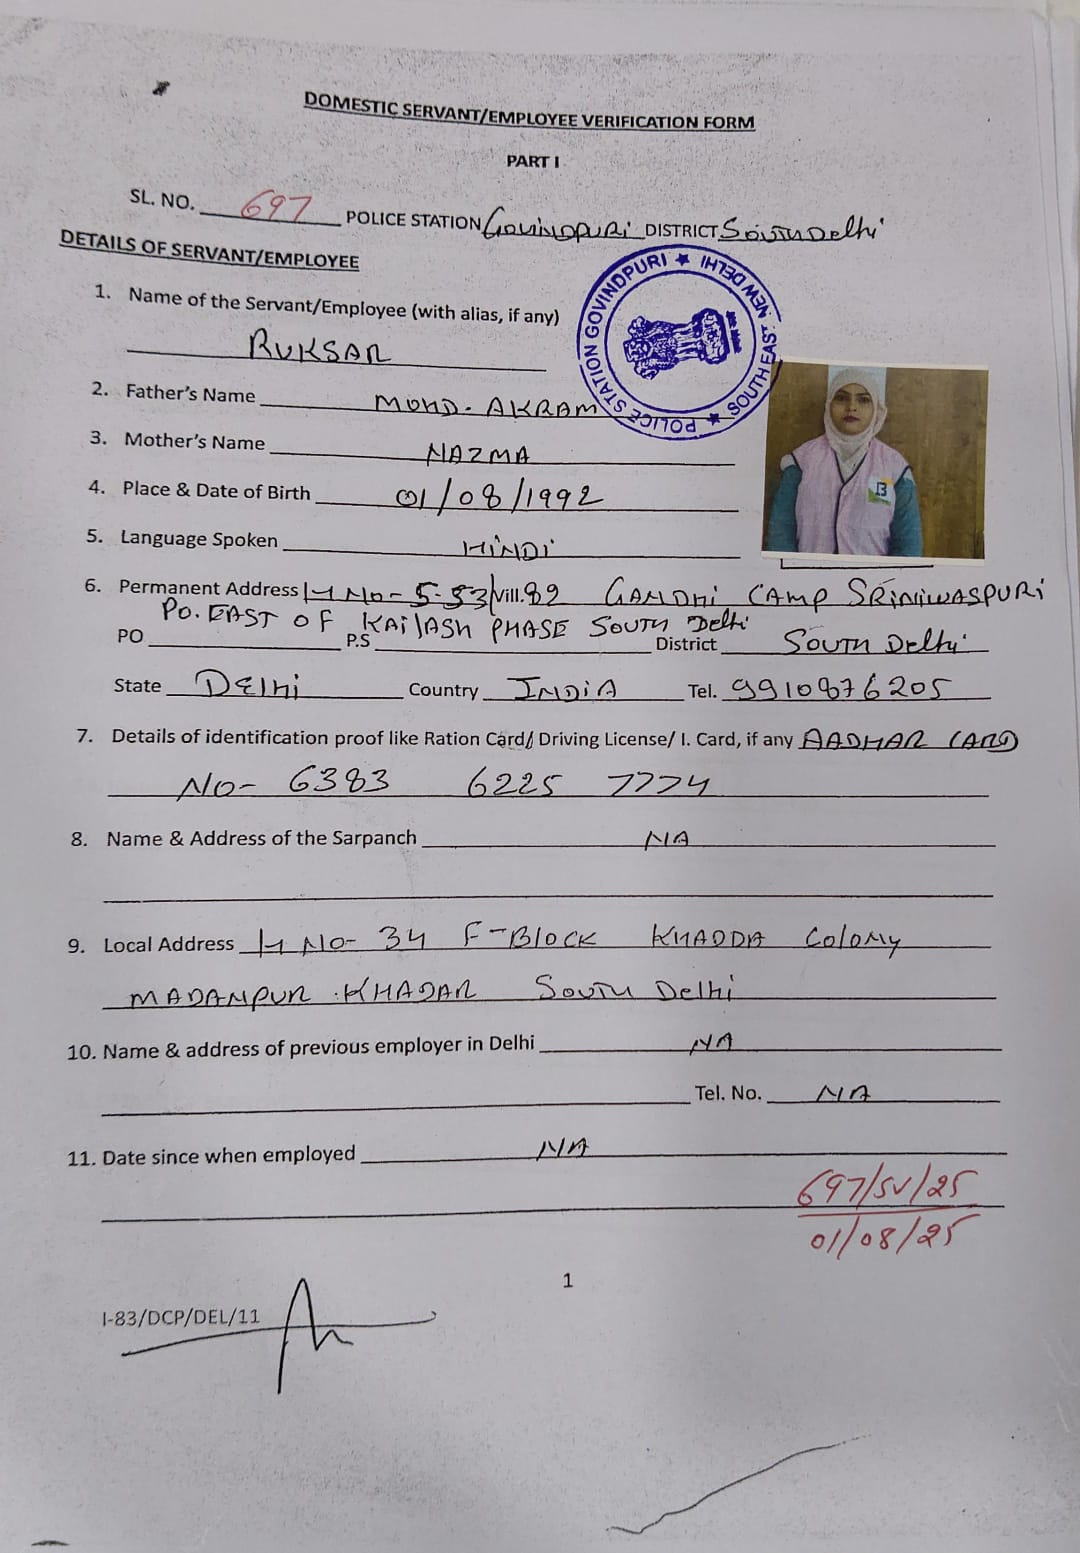 DOMESTIC SERVANT/EMPLOYEE VERIFICATION FORM
PART I
SL. NO. 697 POLICE STATION Govindpuri DISTRICT South Delhi
DETAILS OF SERVANT/EMPLOYEE
POLICE STATION GOVINDPURI ★ SOUTH EAST, NEW DELHI ★
1. Name of the Servant/Employee (with alias, if any)
RUKSAR
2. Father's Name MOHD. AKRAM
3. Mother's Name NAZMA
4. Place & Date of Birth 01/08/1992
5. Language Spoken HINDI
6. Permanent Address H No- S-53/Vill.89 GANDHI CAMP SRINIWASPURI
PO. EAST OF KAILASH PHASE SOUTH Delhi
PO P.S District SOUTH Delhi
State DElhi Country INDIA Tel. 9910876205
7. Details of identification proof like Ration Card/ Driving License/ I. Card, if any AADHAR CARD
NO- 6383 6225 7774
8. Name & Address of the Sarpanch NA
9. Local Address H No- 34 F-Block KHADDA Colony
MADANPUR KHADAR South Delhi
10. Name & address of previous employer in Delhi NA
Tel. No. NA
11. Date since when employed NA
697/SV/25
01/08/25
1
I-83/DCP/DEL/11